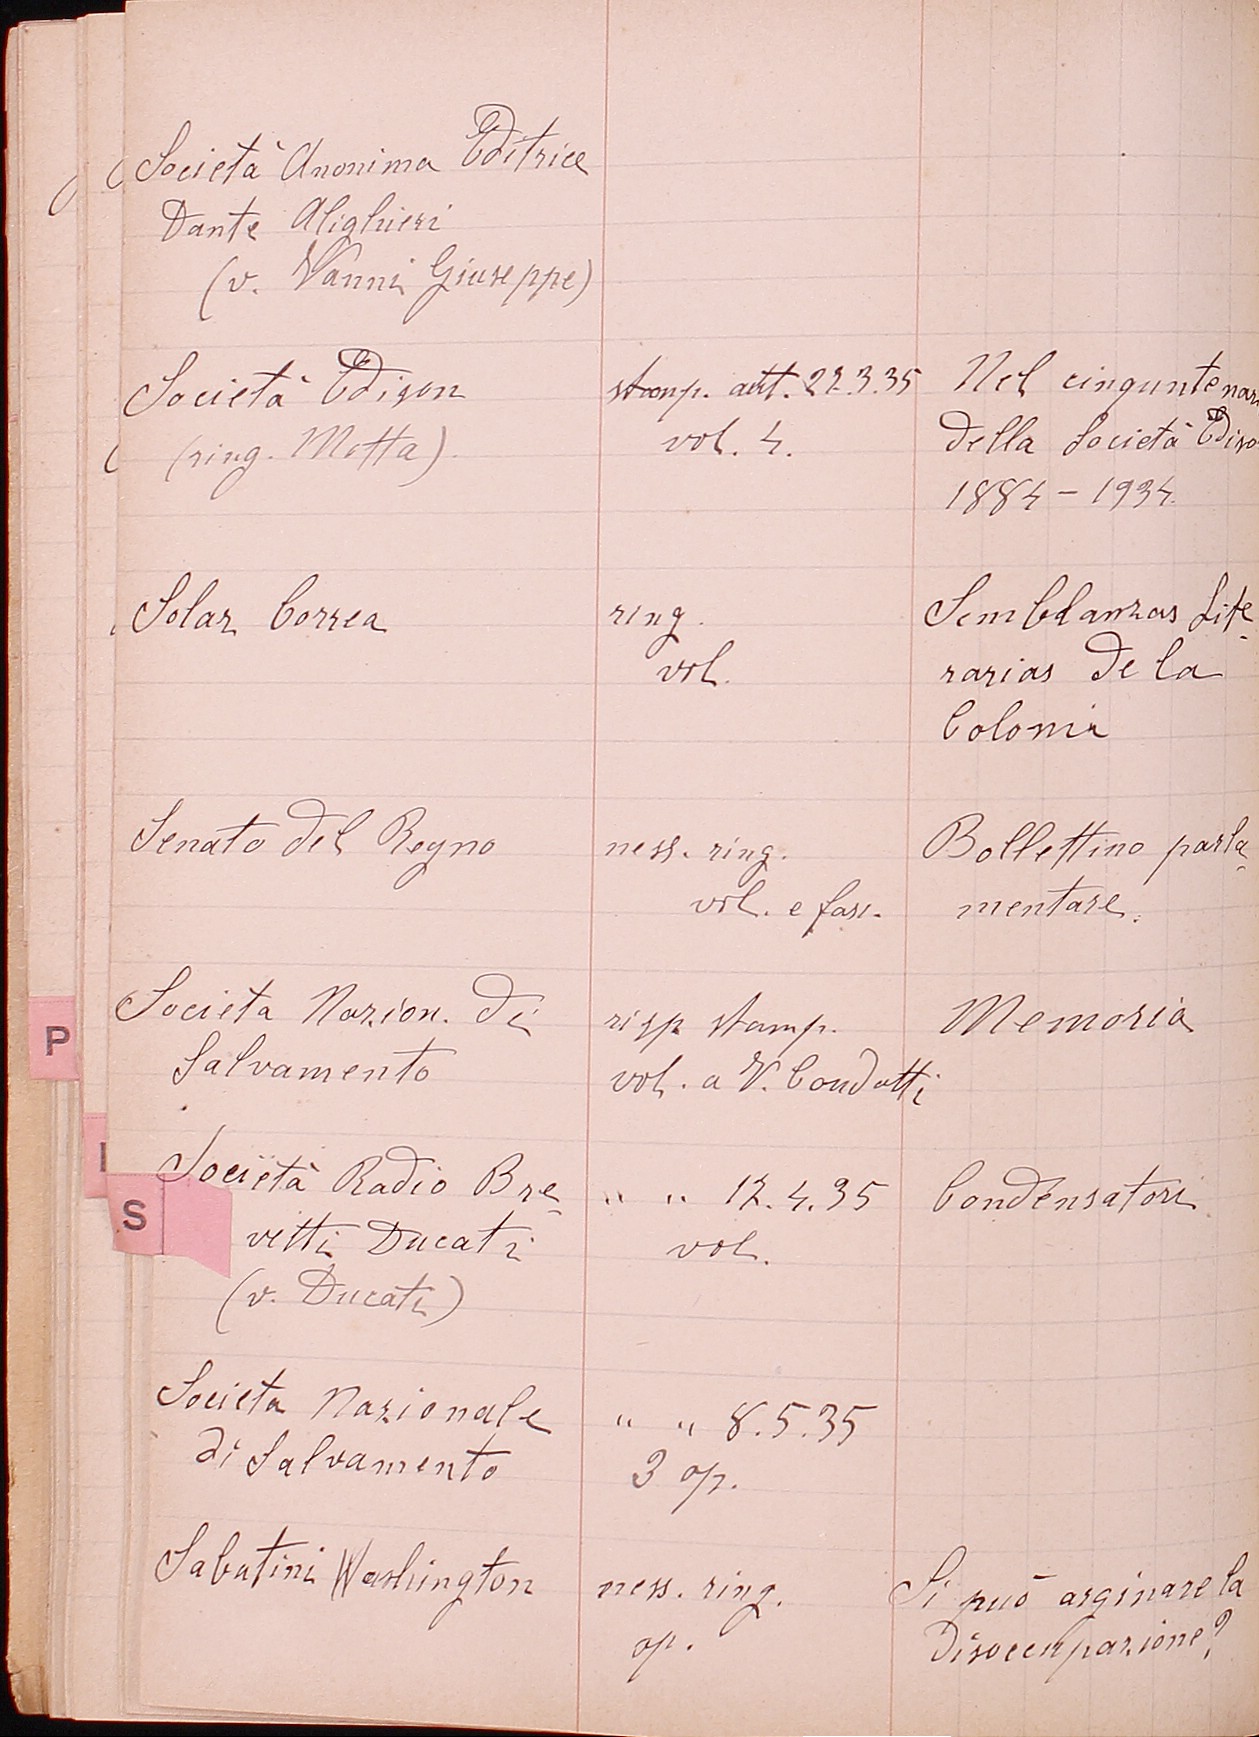 Società Anonima Editrice
Dante Alighieri
(v. Vanni Giuseppe)
Società Edison stamp. aut. 22.3.35 Nel cinquntenar
(ring. Motta) vol. 4. della Società Ediso
1884 - 1934.
Solar Correa ring. Semblanzas Lite-
vol. rarias de la
Colonia
Senato del Regno ness. ring. Bollettino parla-
vol. e fasc. mentare.
Societa Nazion. di risp stamp. Memoria
Salvamento vol. a V. Condotti
Società Radio Bre- " " 12.4.35 Condensatori
vetti Ducati vol.
(v. Ducati)
Societa Nazionale " " 8.5.35
di Salvamento 3 op.
Sabatini Washington ness. ring. Si può arginare la
op. disoccupazione?
P
L
S